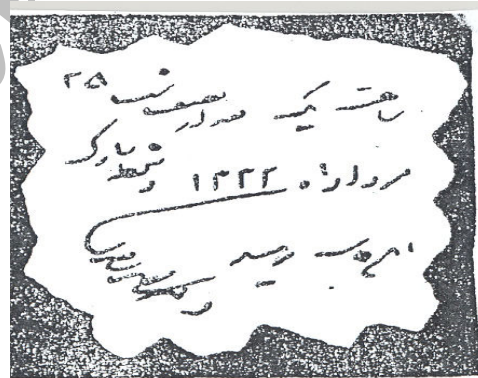 ساعت یک بعد از نصف شب ۲۵
مرداد ماه ۱۳۳۲ دستخط مبارک
اینجانب رسید
دکتر محمد مصدق